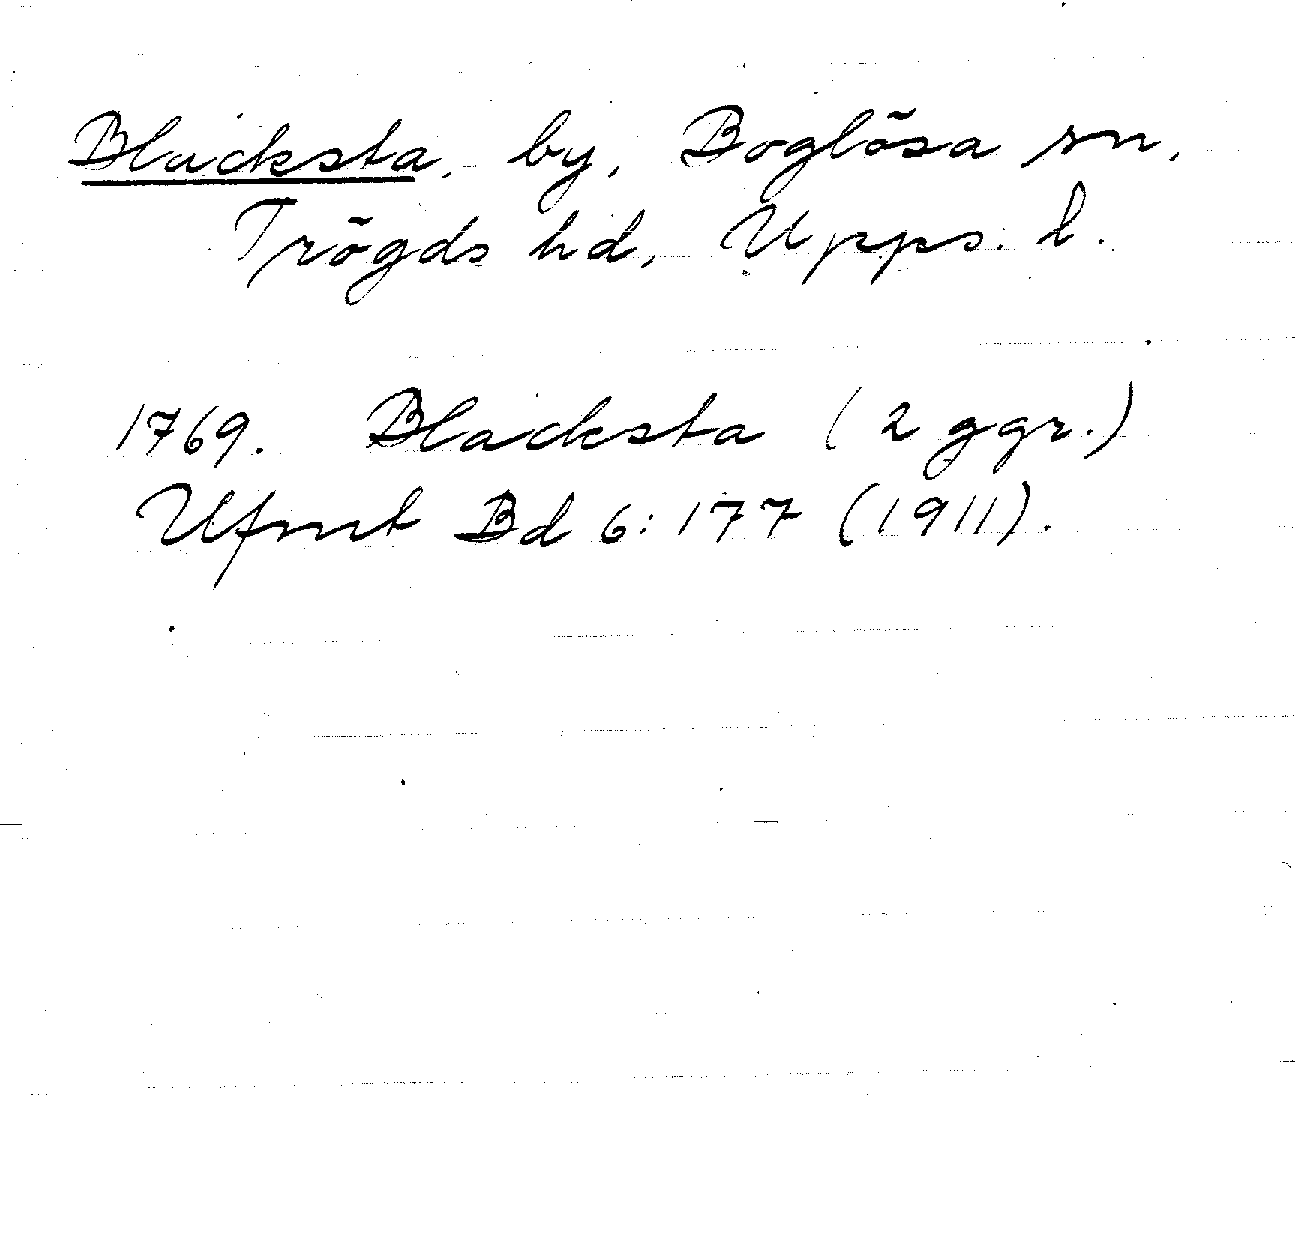 Blacksta, by, Boglösa sn,
Trögds hd, Upps. l.
1769. Blacksta (2 ggr.)
Ufmt Bd 6: 177 (1911).